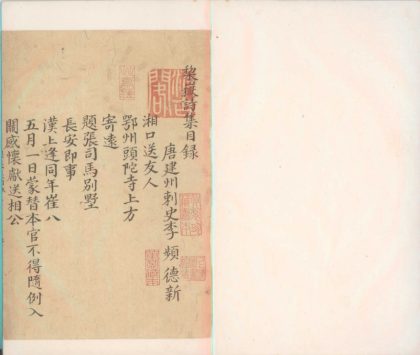 黎嶽詩集目録
唐建州刺史李 頻 德新
湘口送友人
鄂州頭陀寺上方
寄遠
題張司馬别墅
長安即事
漢上逢同年崔八
五月一日蒙替本官不得隨例入
闕感懷獻送相公